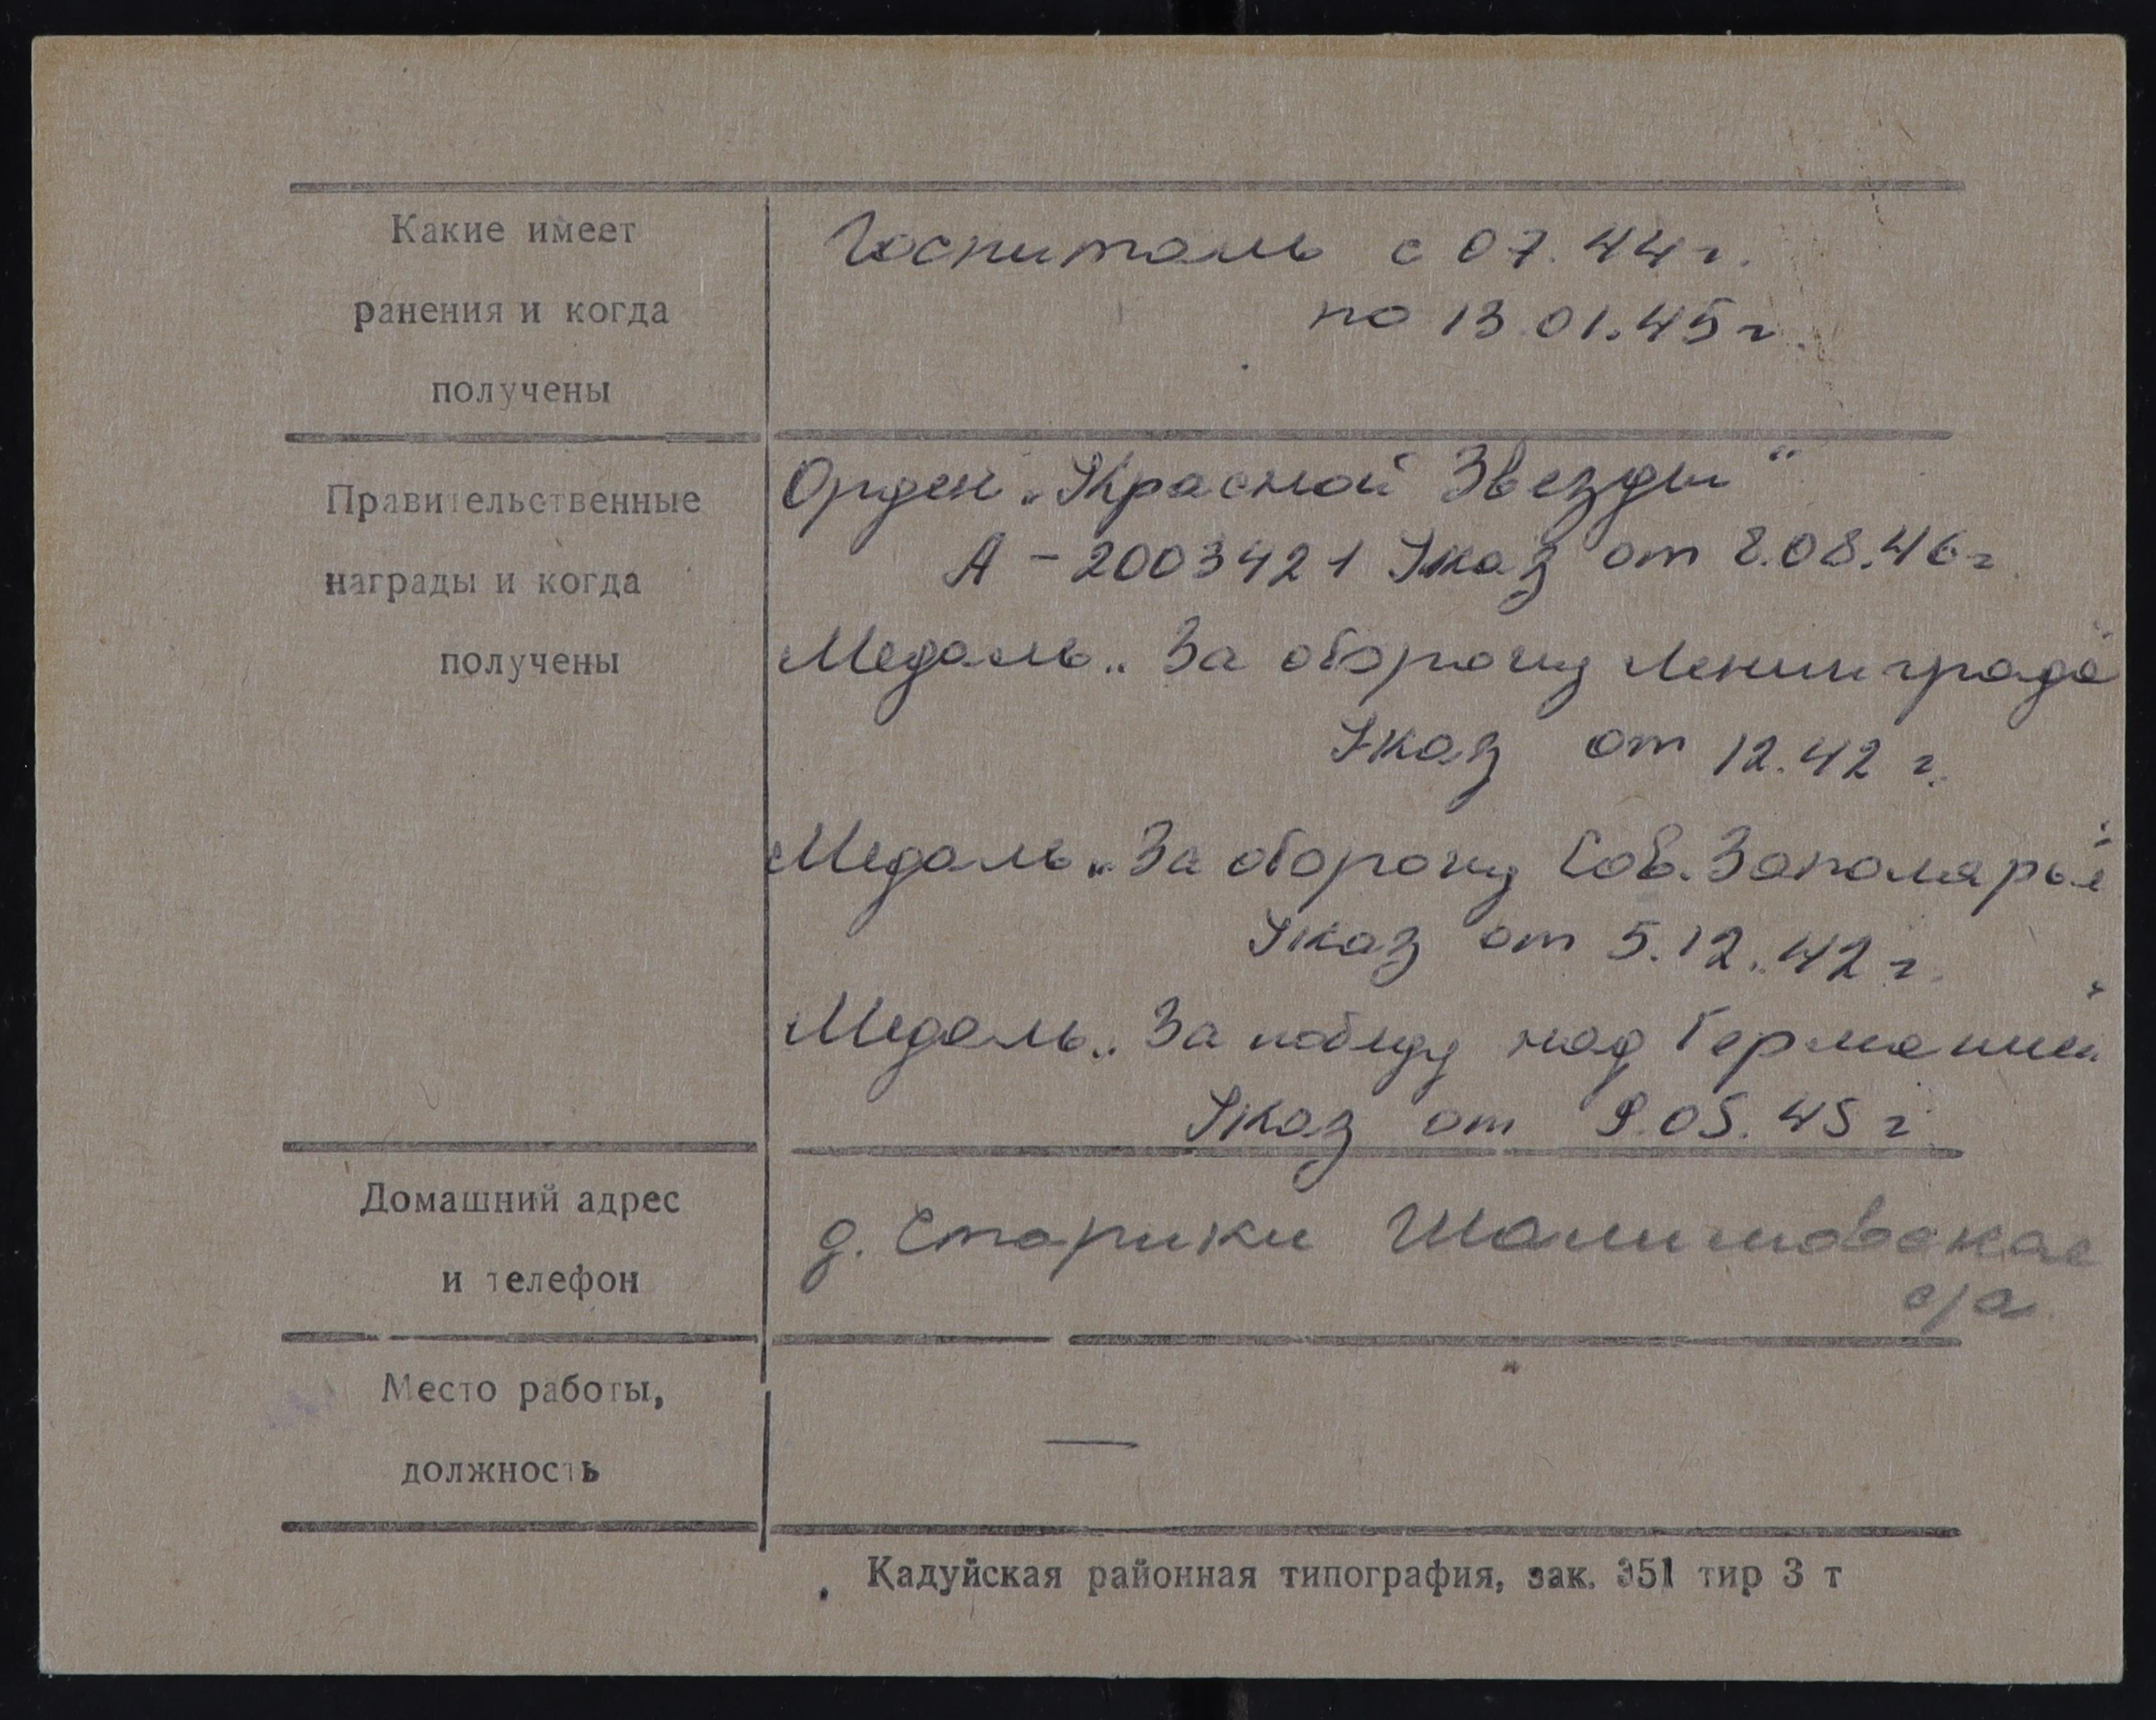 Какие имеет
ранения и когда
получены
Госпиталь с 07.44 г.
по 13.01.45 г.
Правительственные
награды и когда
получены
Орден „Красной Звезды“
А – 2003421 Указ от 8.08.46 г.
Медаль „За оборону Ленинграда“
Указ от 12.42 г.
Медаль „За оборону Сов. Заполярья“
Указ от 5.12.42 г.
Медаль „За победу над Германией“
Указ от 9.05.45 г.
Домашний адрес
и телефон
д. Старики
Место работы,
должность
—
Кадуйская районная типография, зак. 351 тир 3 т